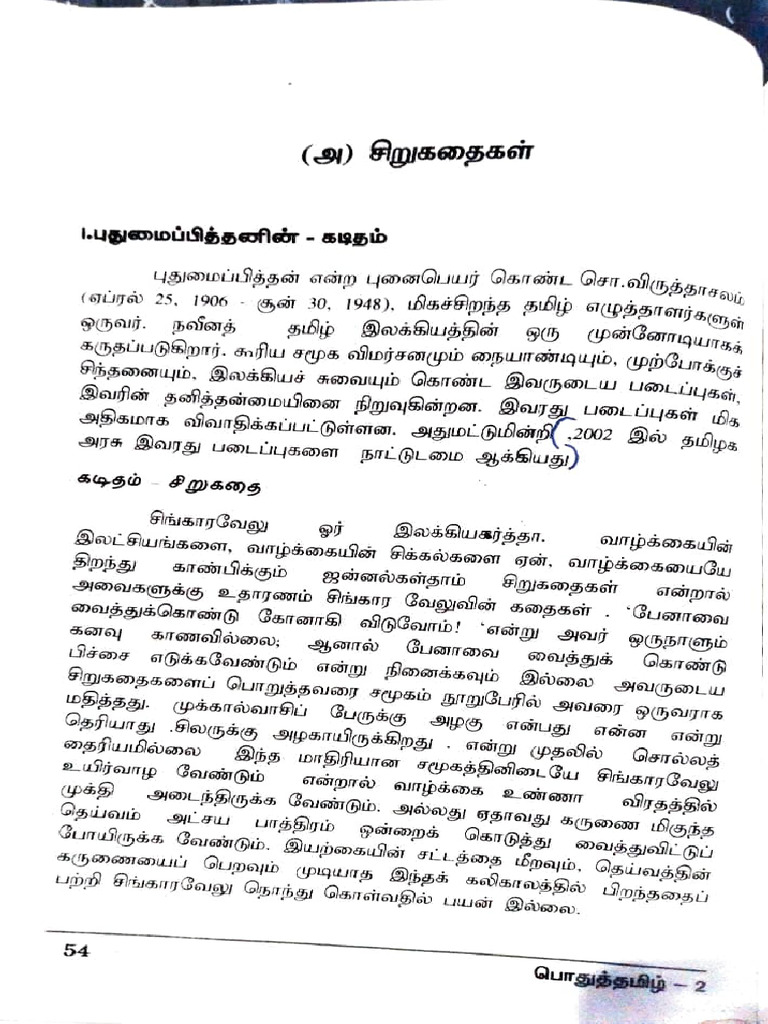 (அ) சிறுகதைகள்
1.புதுமைப்பித்தனின் - கடிதம்
புதுமைப்பித்தன் என்ற புனைபெயர் கொண்ட சொ.விருத்தாசலம்
(ஏப்ரல் 25, 1906 - சூன் 30, 1948), மிகச்சிறந்த தமிழ் எழுத்தாளர்களுள்
ஒருவர். நவீனத் தமிழ் இலக்கியத்தின் ஒரு முன்னோடியாகக்
கருதப்படுகிறார். கூரிய சமூக விமர்சனமும் நையாண்டியும், முற்போக்குச்
சிந்தனையும், இலக்கியச் சுவையும் கொண்ட இவருடைய படைப்புகள்,
இவரின் தனித்தன்மையினை நிறுவுகின்றன. இவரது படைப்புகள் மிக
அதிகமாக விவாதிக்கப்பட்டுள்ளன. அதுமட்டுமின்றி ,2002 இல் தமிழக
அரசு இவரது படைப்புகளை நாட்டுடமை ஆக்கியது
கடிதம் - சிறுகதை
சிங்காரவேலு ஓர் இலக்கியகர்த்தா. வாழ்க்கையின்
இலட்சியங்களை, வாழ்க்கையின் சிக்கல்களை ஏன், வாழ்க்கையையே
திறந்து காண்பிக்கும் ஜன்னல்கள்தாம் சிறுகதைகள் என்றால்
அவைகளுக்கு உதாரணம் சிங்கார வேலுவின் கதைகள் . 'பேனாவை
வைத்துக்கொண்டு கோனாகி விடுவோம்! 'என்று அவர் ஒருநாளும்
கனவு காணவில்லை; ஆனால் பேனாவை வைத்துக் கொண்டு
பிச்சை எடுக்கவேண்டும் என்று நினைக்கவும் இல்லை அவருடைய
சிறுகதைகளைப் பொறுத்தவரை சமூகம் நூறுபேரில் அவரை ஒருவராக
மதித்தது. முக்கால்வாசிப் பேருக்கு அழகு என்பது என்ன என்று
தெரியாது .சிலருக்கு அழகாயிருக்கிறது . என்று முதலில் சொல்லத்
தைரியமில்லை இந்த மாதிரியான சமூகத்தினிடையே சிங்காரவேலு
உயிர்வாழ வேண்டும் என்றால் வாழ்க்கை உண்ணா விரதத்தில்
முக்தி அடைந்திருக்க வேண்டும். அல்லது ஏதாவது கருணை மிகுந்த
தெய்வம் அட்சய பாத்திரம் ஒன்றைக் கொடுத்து வைத்துவிட்டுப்
போயிருக்க வேண்டும். இயற்கையின் சட்டத்தை மீறவும், தெய்வத்தின்
கருணையைப் பெறவும் முடியாத இந்தக் கலிகாலத்தில் பிறந்ததைப்
பற்றி சிங்காரவேலு நொந்து கொள்வதில் பயன் இல்லை.
54
பொதுத்தமிழ் - 2